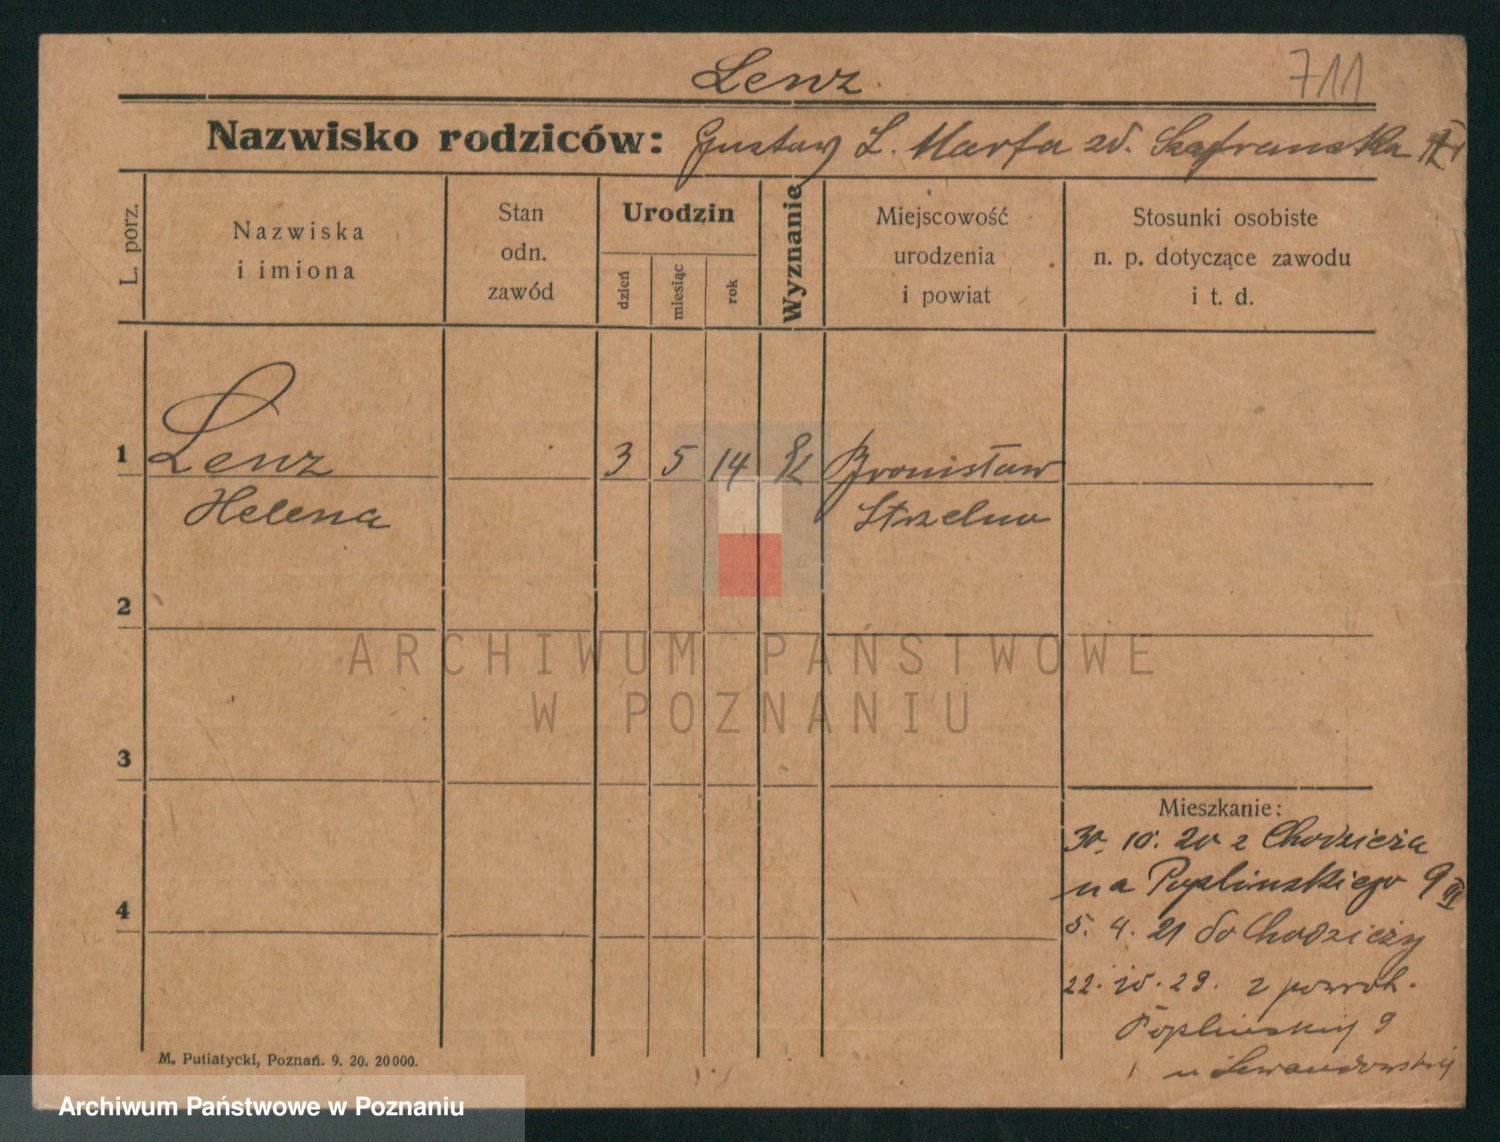 Lenz
711
Nazwisko rodziców: Gustaw L. Marta zd. Szafrańska
L. porz.
Nazwiska i imiona
Stan odn. zawód
Urodzin
dzień
miesiąc
rok
Wyznanie
Miejscowość urodzenia i powiat
Stosunki osobiste n. p. dotyczące zawodu i t. d.
1 Lenz 3 5 14 Bronisław
Helena Strzelno
2
3
4
Mieszkanie:
30. 10. 20 z Chodzieża
na Poplińskiego 9
5. 4. 21 do Chodzieży
22. 10. 29. z powrot.
Poplińskiej 9
u Lewandowskiej
M. Putiatycki, Poznań. 9. 20. 20000.
ARCHIWUM PAŃSTWOWE
W POZNANIU
Archiwum Państwowe w Poznaniu